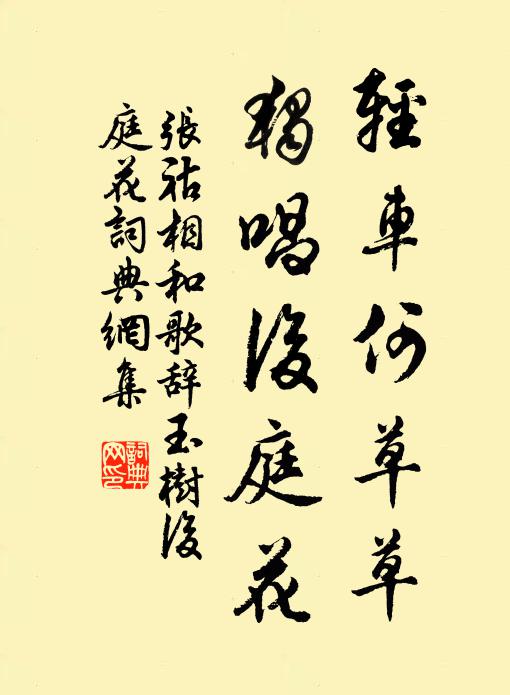 輕車何草草
獨唱後庭花
張祜相和歌辭玉樹後
庭花詞典網集
詞典
网印